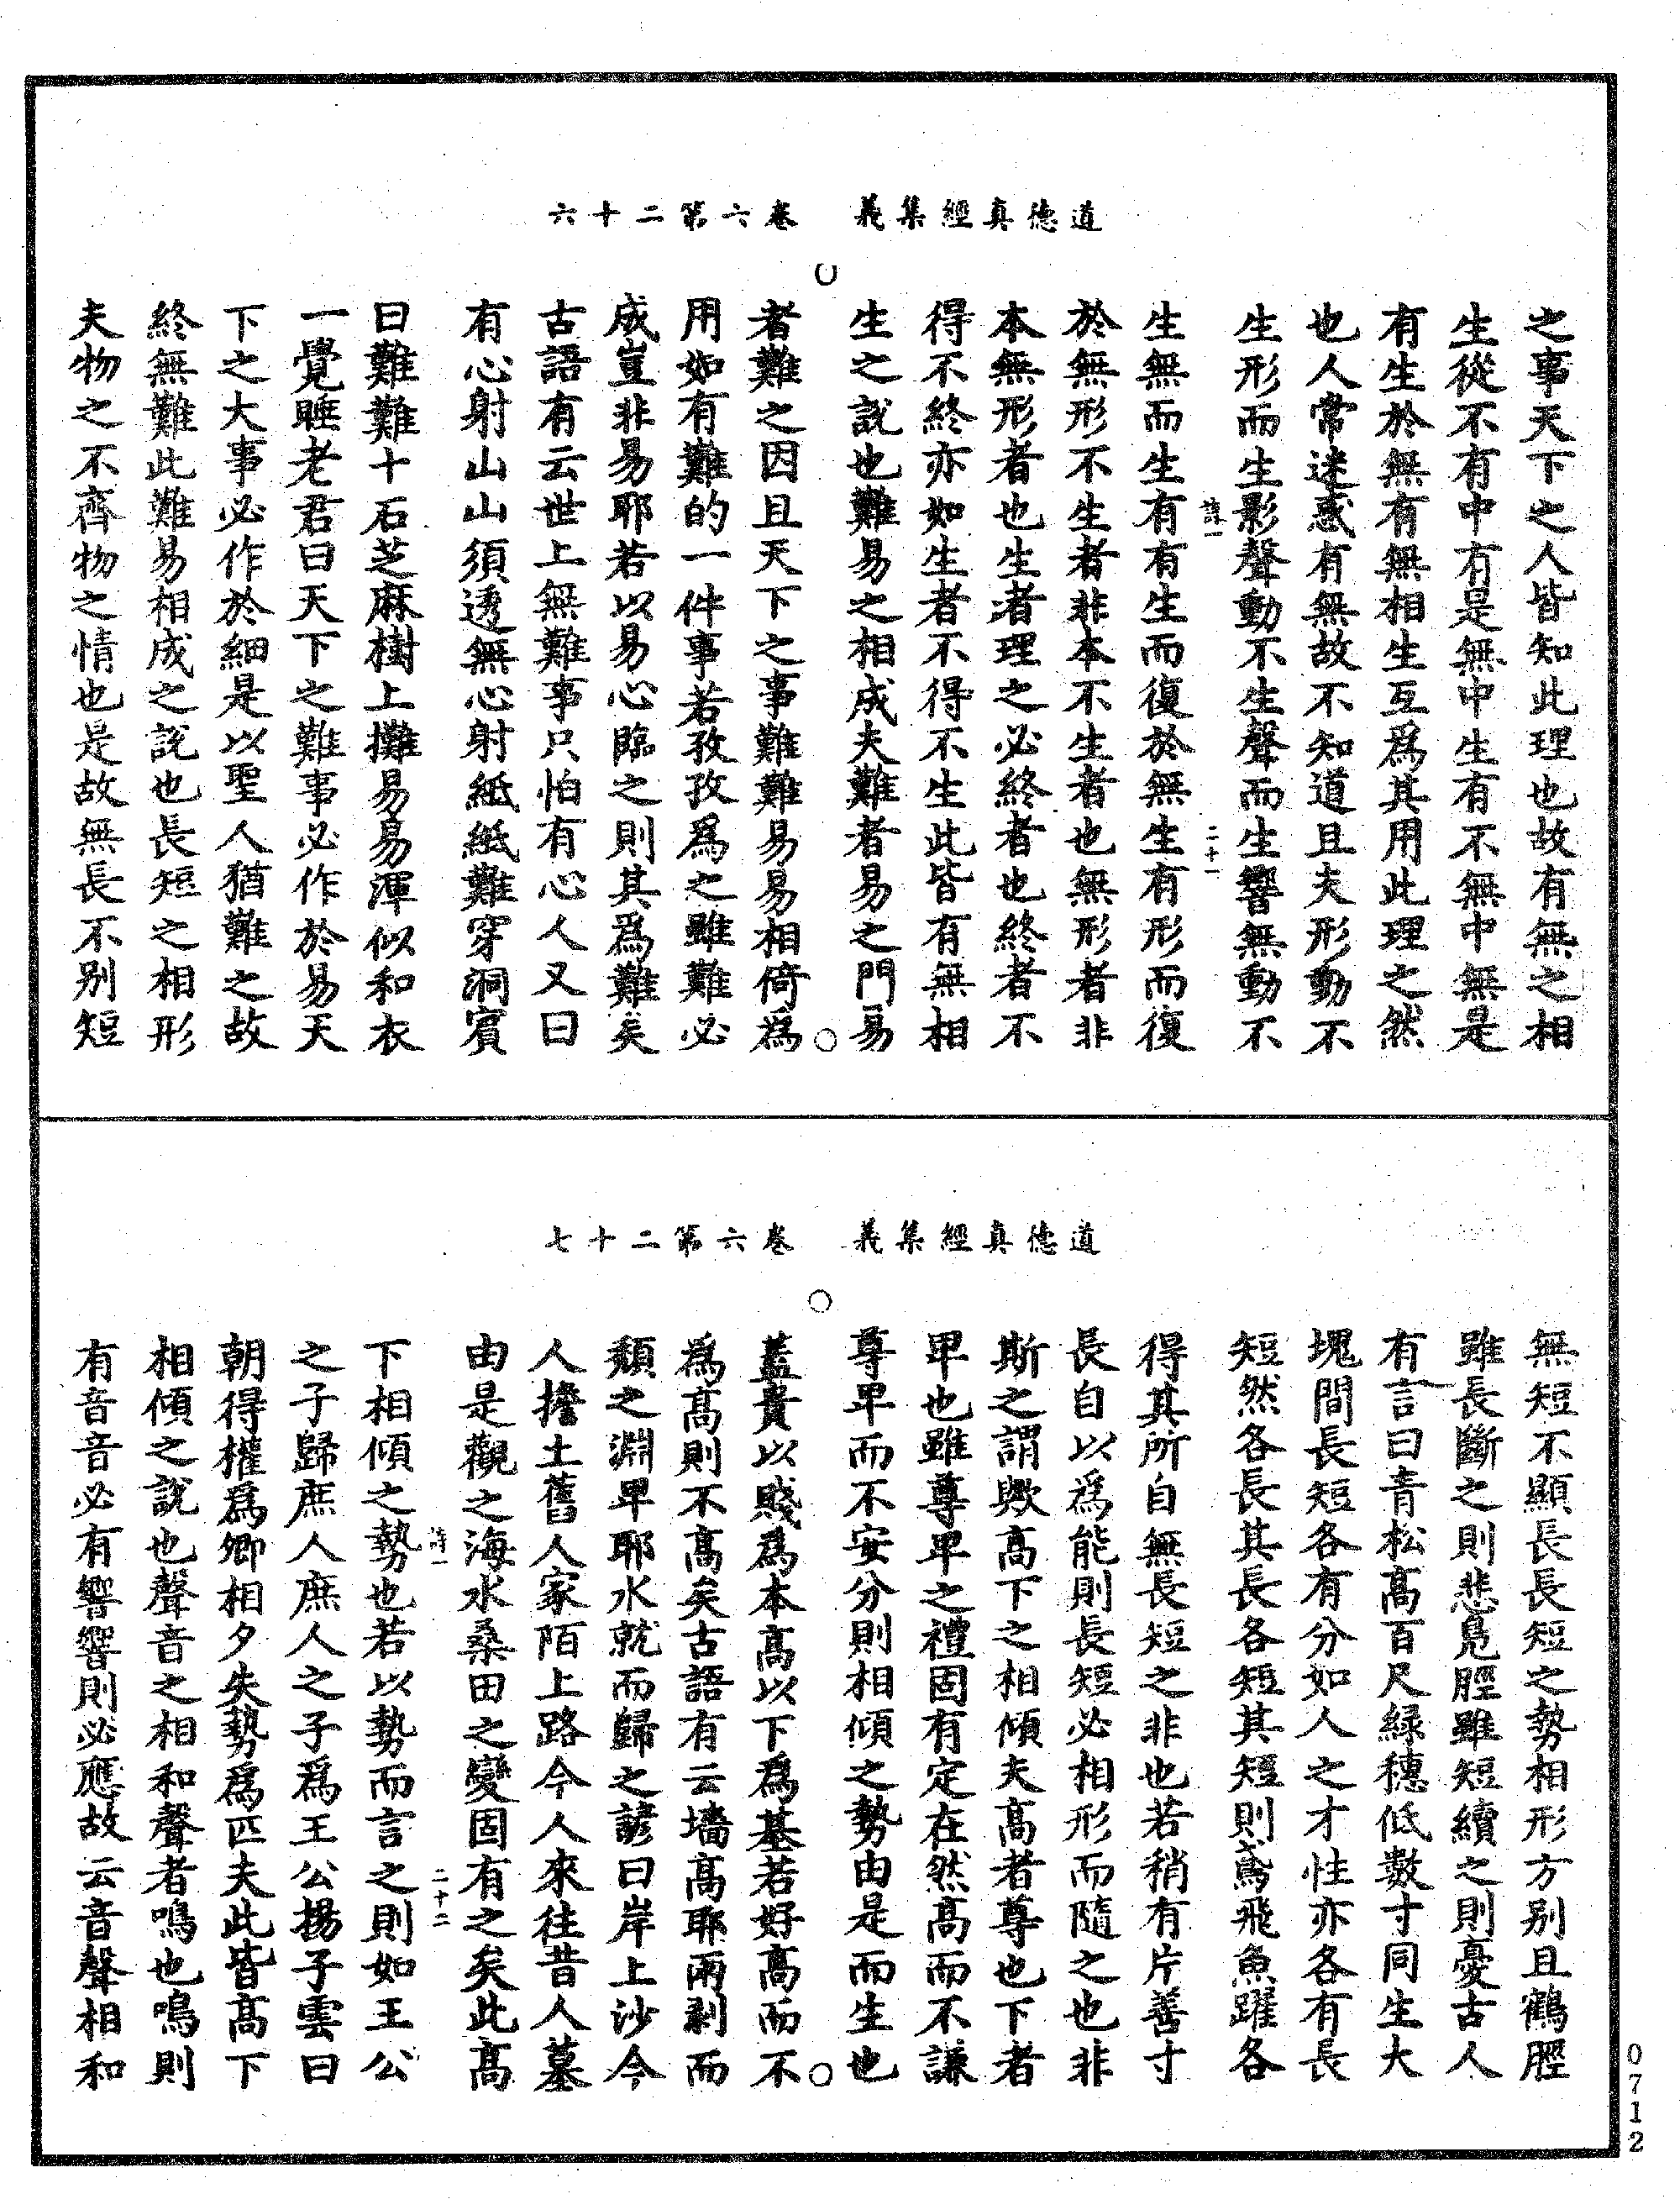 道德真經集義　卷六第二十六
之事天下之人皆知此理也故有無之相
生從不有中有是無中生有不無中無是
有生於無有無相生互爲其用此理之然
也人常迷惑有無故不知道且夫形動不
生形而生影聲動不生聲而生響無動不
詩一　二十一
生無而生有有生而復於無生有形而復
於無形不生者非本不生者也無形者非
本無形者也生者理之必終者也終者不
得不終亦如生者不得不生此皆有無相
生之說也難易之相成夫難者易之門易
者難之因且天下之事難難易易相倚爲
用如有難的一件事若孜孜爲之雖難必
成豈非易耶若以易心臨之則其爲難矣
古語有云世上無難事只怕有心人又曰
有心射山山須透無心射紙紙難穿洞賓
曰難難十石芝麻樹上攤易易渾似和衣
一覺睡老君曰天下之難事必作於易天
下之大事必作於細是以聖人猶難之故
終無難此難易相成之說也長短之相形
夫物之不齊物之情也是故無長不別短
道德真經集義　卷六第二十七
無短不顯長長短之勢相形方別且鶴脛
雖長斷之則悲鳬脛雖短續之則憂古人
有言曰青松高百尺緑穗低數寸同生大
塊間長短各有分如人之才性亦各有長
短然各長其長各短其短則鳶飛魚躍各
得其所自無長短之非也若稍有片善寸
長自以爲能則長短必相形而隨之也非
斯之謂歟高下之相傾夫高者尊也下者
卑也雖尊卑之禮固有定在然高而不謙
尊卑而不安分則相傾之勢由是而生也
蓋貴以賤爲本高以下爲基若好高而不
爲高則不高矣古語有云墻高耶雨剥而
頹之淵卑耶水就而歸之諺曰岸上沙今
人擔土舊人家陌上路今人來往昔人墓
由是觀之海水桑田之變固有之矣此高
詩一　二十二
下相傾之勢也若以勢而言之則如王公
之子歸庶人庶人之子爲王公揚子雲曰
朝得權爲卿相夕失勢爲匹夫此皆高下
相傾之說也聲音之相和聲者鳴也鳴則
有音音必有響響則必應故云音聲相和
0712